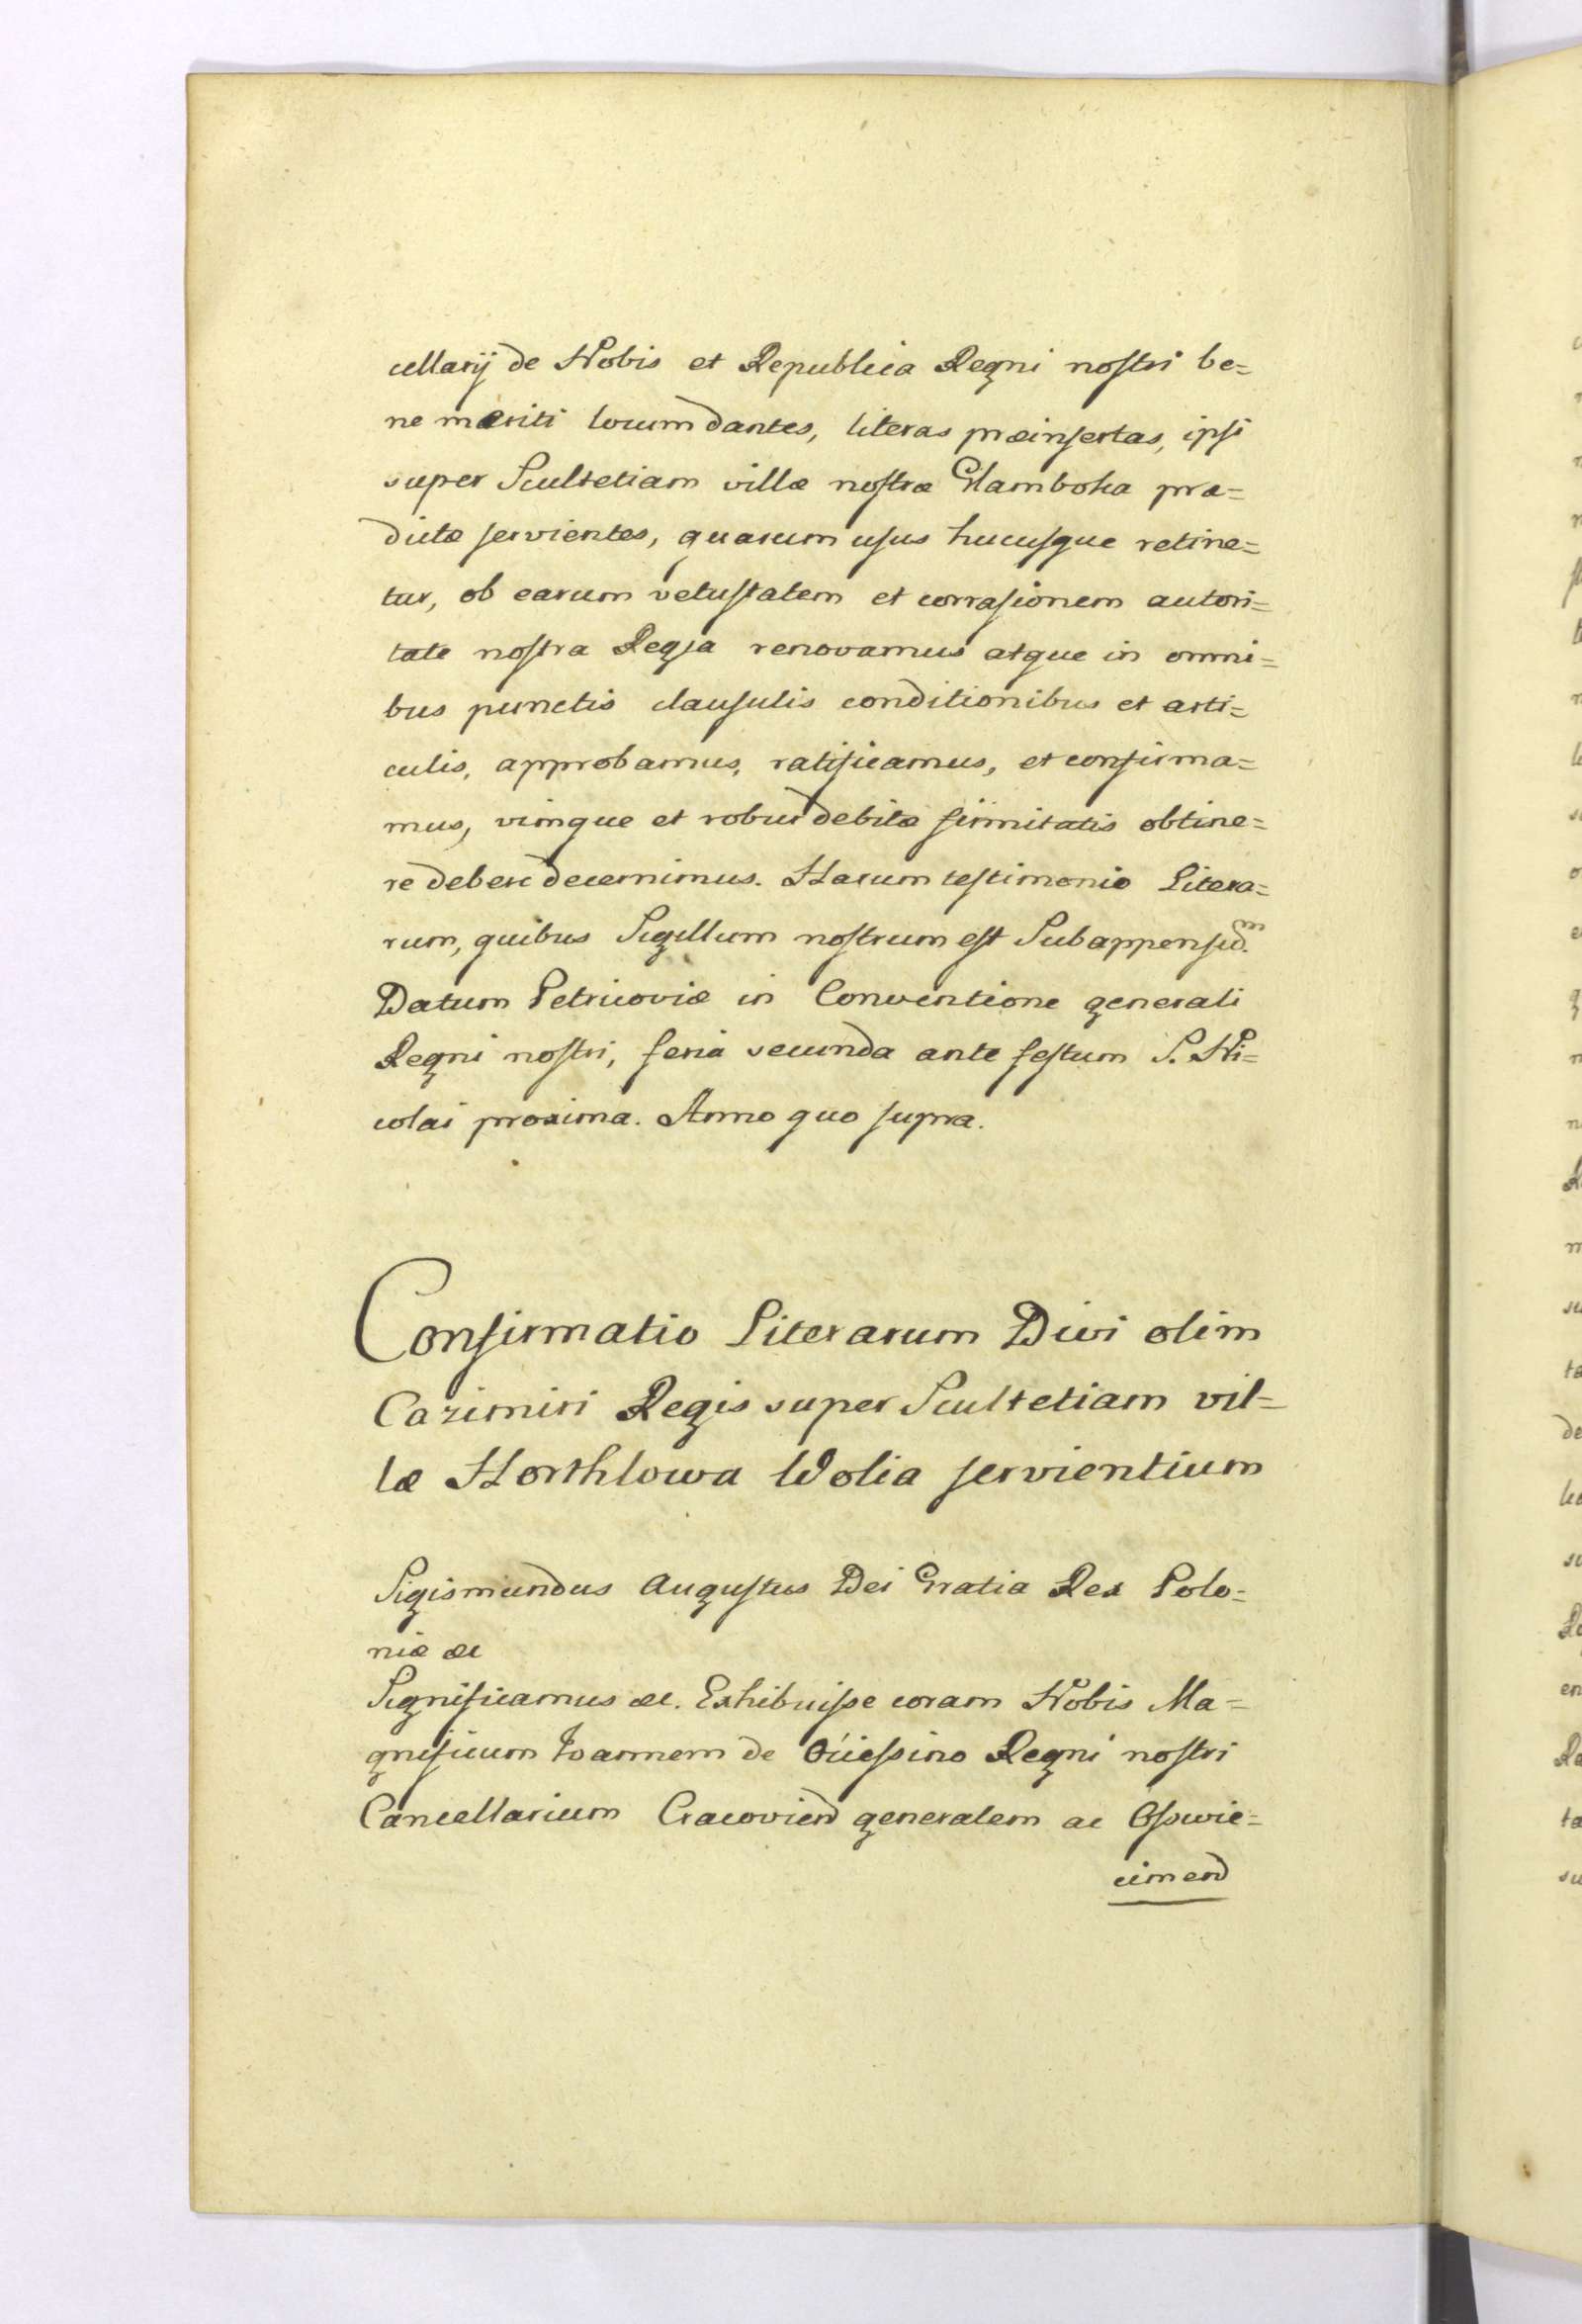 cellarij de Nobis et Republica Regni nostri be=
ne meriti locum dantes, literas præinsertas, ipsi
super Scultetiam villæ nostræ Glamboka præ=
dictæ servientes, quarum usus hucusque retine=
tur, ob earum vetustatem et corrasionem autori=
tate nostra Regia renovamus atque in omni=
bus punctis clausulis conditionibus et arti=
culis, approbamus, ratificamus, et confirma=
mus, vimque et robur debitæ firmitatis obtine=
re debere decernimus. Harum testimonio Litera=
rum, quibus Sigillum nostrum est Subappensum.
Datum Petricoviæ in Conventione generali
Regni nostri, feria secunda ante festum S. Ni=
colai proxima. Anno quo supra.
Confirmatio Literarum Divi olim
Cazimiri Regis super Scultetiam vil=
læ Horthlowa Wolia servientium
Sigismundus Augustus Dei Gratia Rex Polo=
niæ &c
Significamus &c. Exhibuisse coram Nobis Ma=
gnificum Joannem de Regni nostri
Cancellarium Cracovien generalem ac Osswie=
cimen